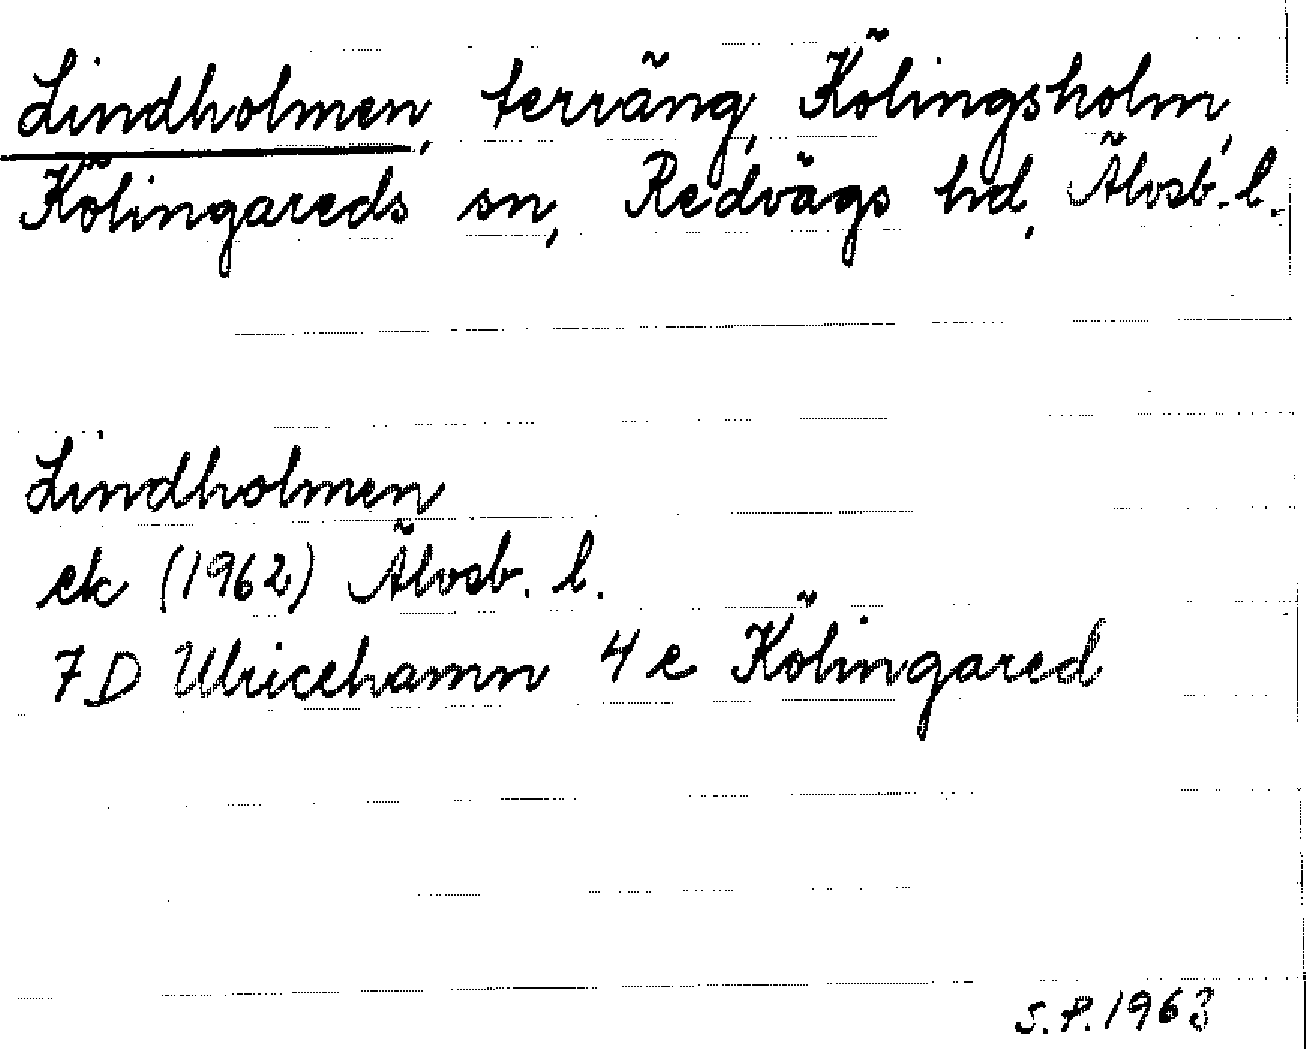 Lindholmen, terräng, Kölingsholm,
Kölingareds sn, Redvägs hd, Älvsb. l.
Lindholmen
ek (1962) Älvsb. l.
7D Ulricehamn 4e Kölingared
S.P. 1963